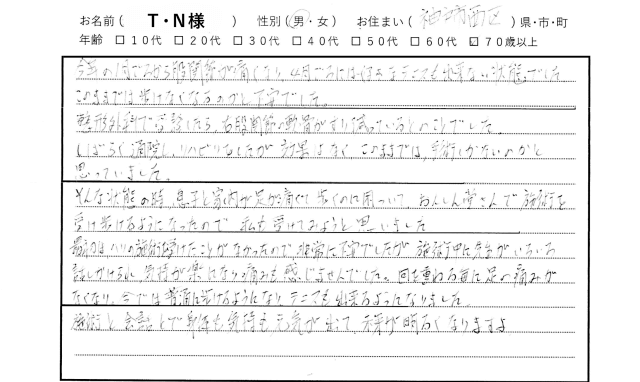 お名前( T・N様 ) 性別(男・女) お住まい( 神埼西区 )県・市・町
年齢 □10代 □20代 □30代 □40代 □50代 □60代 ☑70歳以上
今年の1月ごろから股関節が痛くなり、4月ごろには ほとんどテニスも出来ない状態でした
このままでは歩けなくなるのかと不安でした。
整形外科で受診したら、右股関節の軟骨がすり減っているとのことでした。
しばらく通院し、リハビリもしたが効果はなく このままでは、手術しかないのかと
思っていました。
そんな状態の時、息子と家内が足が痛くて歩くのに困っていて、おんしん堂さんで施術を
受け歩けるようになったので 私も受けてみようと思いました
最初は、ハリの施術を受けたことがなかったので、非常に不安でしたが 施術中に先生がいろいろ
話しかけられ 気持が楽になり痛みも感じませんでした。回を重ねる毎に足の痛みが
なくなり、今では普通に歩けるようになり テニスも出来るようになりました。
施術と会話とで身体も気持も元気が出て 未来が明るくなりますよ